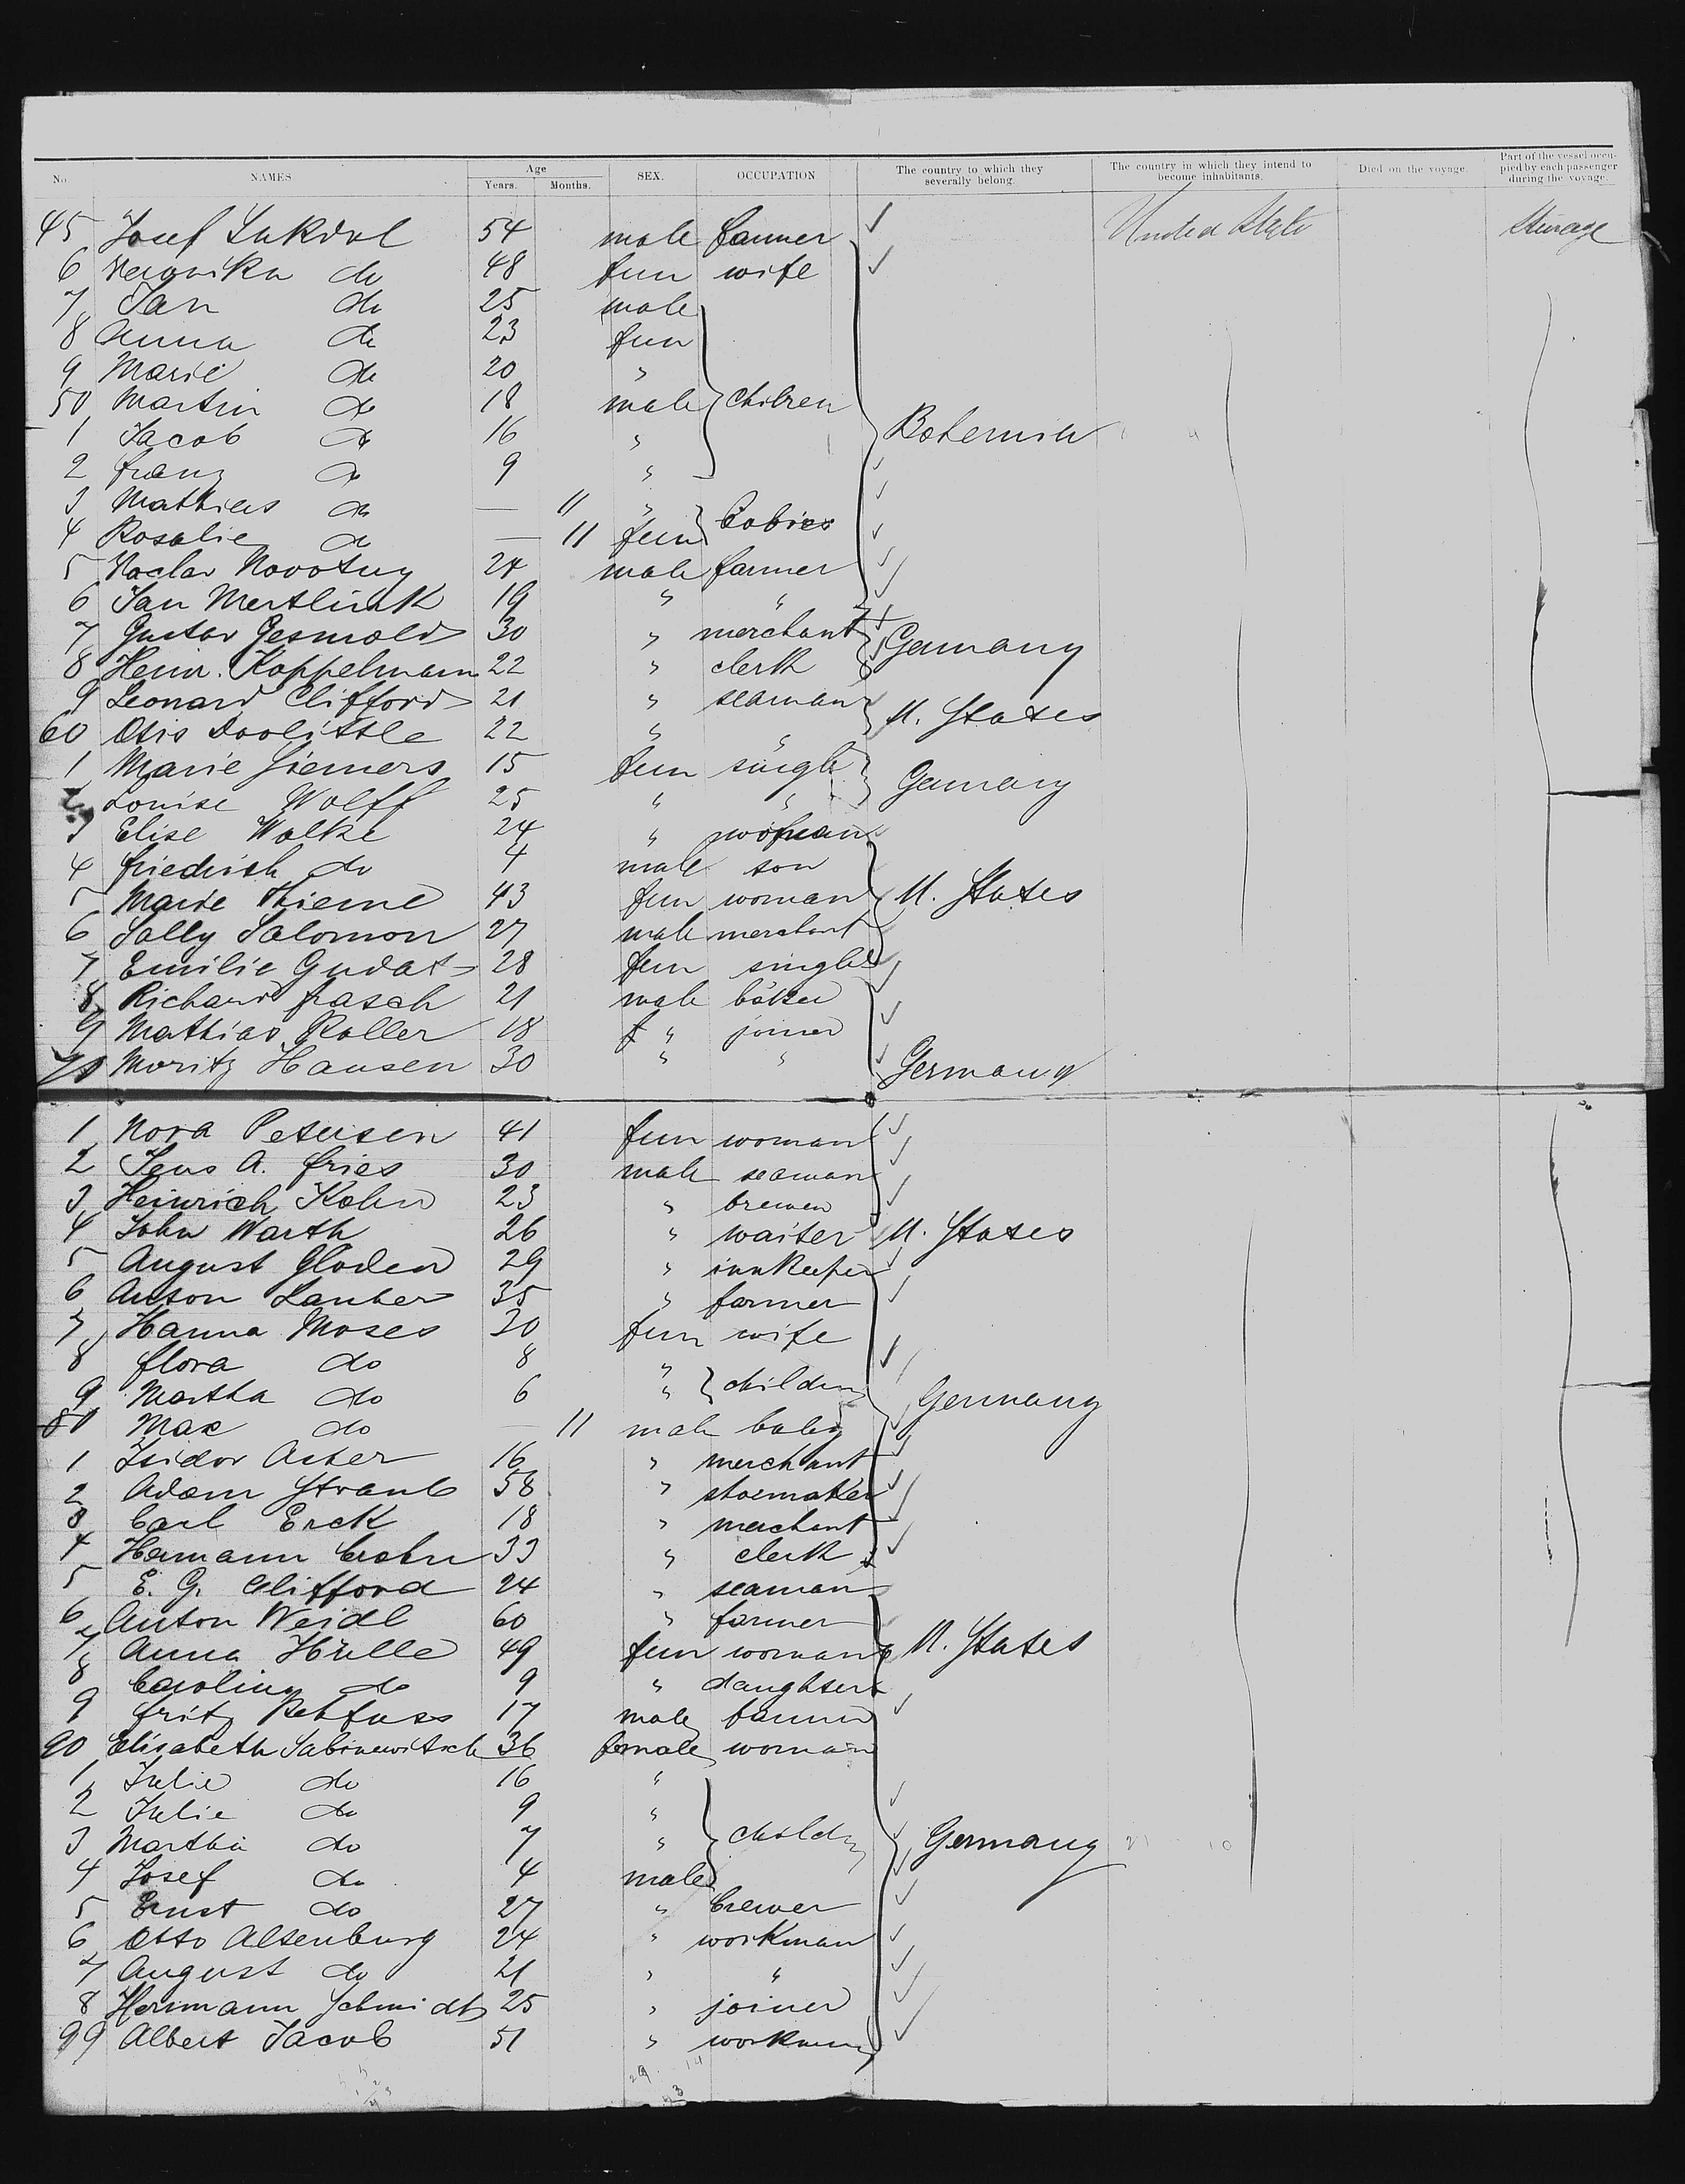 No. NAMES Age Years. Months. SEX. OCCUPATION The country to which they severally belong. The country in which they intend to become inhabitants. Died on the voyage. Part of the vessel occupied by each passenger during the voyage.
45 Josef Sukdol 54 male farmer United States Steerage
6 Veronika do 48 fem wife
7 Jan do 25 male
8 Anna do 23 fem
9 Marie do 20 "
50 Martin do 18 male children
1 Jacob do 16 " Bohemia
2 Franz do 9 "
3 Mathias do — 11 "
4 Rosalie do — 11 fem babies
5 Vaclav Novotny 24 male farmer
6 Jan 19 " "
7 Gustav 30 " merchant Germany
8 Heinr. Koppelmann 22 " clerk
9 Leonard Clifford 21 " seaman U. States
60 Otis Doolittle 22 " "
1 Marie Siemers 15 fem single Germany
2 Louise Wolff 25 " "
3 Elise Wolke 24 " woman
4 Friedrich do 4 male son
5 Marie Thieme 43 fem woman U. States
6 Sally Salomon 27 male merchant
7 Emilie Gudat 28 fem single
8 Richard Frasch 21 male baker
9 Mathias Roller 18 " joiner
70 Moritz Hansen 30 " " Germany
1 Nora Petersen 41 fem woman
2 Jens A. Fries 30 male seaman
3 Heinrich Kohn 23 " brewer
4 John Warth 26 " waiter U. States
5 August Gloden 29 " innkeeper
6 Anton Lauber 35 " farmer
7 Hanna Moses 30 fem wife
8 Flora do 8 "
9 Martha do 6 " children Germany
80 Max do — 11 male baby
1 Isidor Ascher 16 " merchant
2 Adam Straub 58 " shoemaker
3 Carl Erck 18 " merchant
4 Hermann Crohn 33 " clerk
5 E. G. Clifford 24 " seaman
6 Anton Weidl 60 " farmer
7 Anna Hülle 49 fem woman U. States
8 Caroline do 9 " daughter
9 Fritz Rehfuss 17 male farmer
90 Elisabeth Sabinewitsch 36 female woman
1 Julie do 16 "
2 Julie do 9 "
3 Martha do 7 " children Germany
4 Josef do 4 male
5 Ernst do 27 " brewer
6 Otto Altenburg 24 " workman
7 August do 21 " "
8 Hermann Schmidt 25 " joiner
99 Albert Jacob 51 " workman